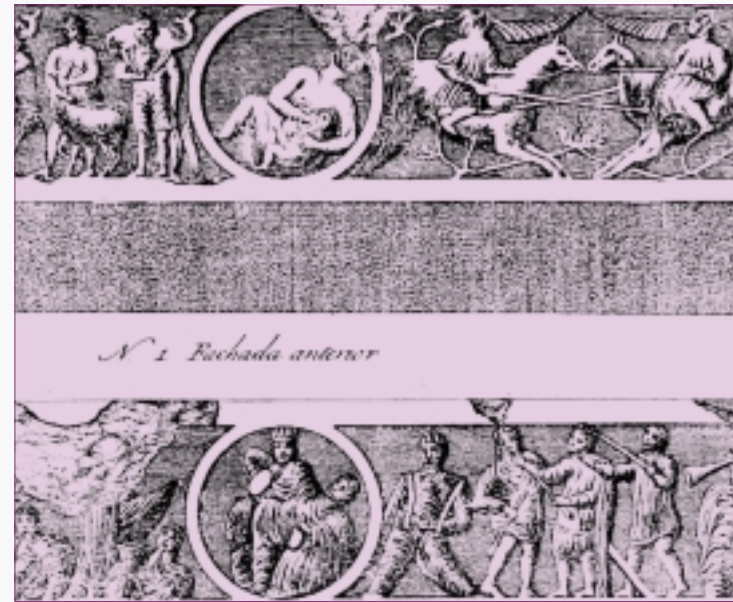 N 1 Fachada anterior